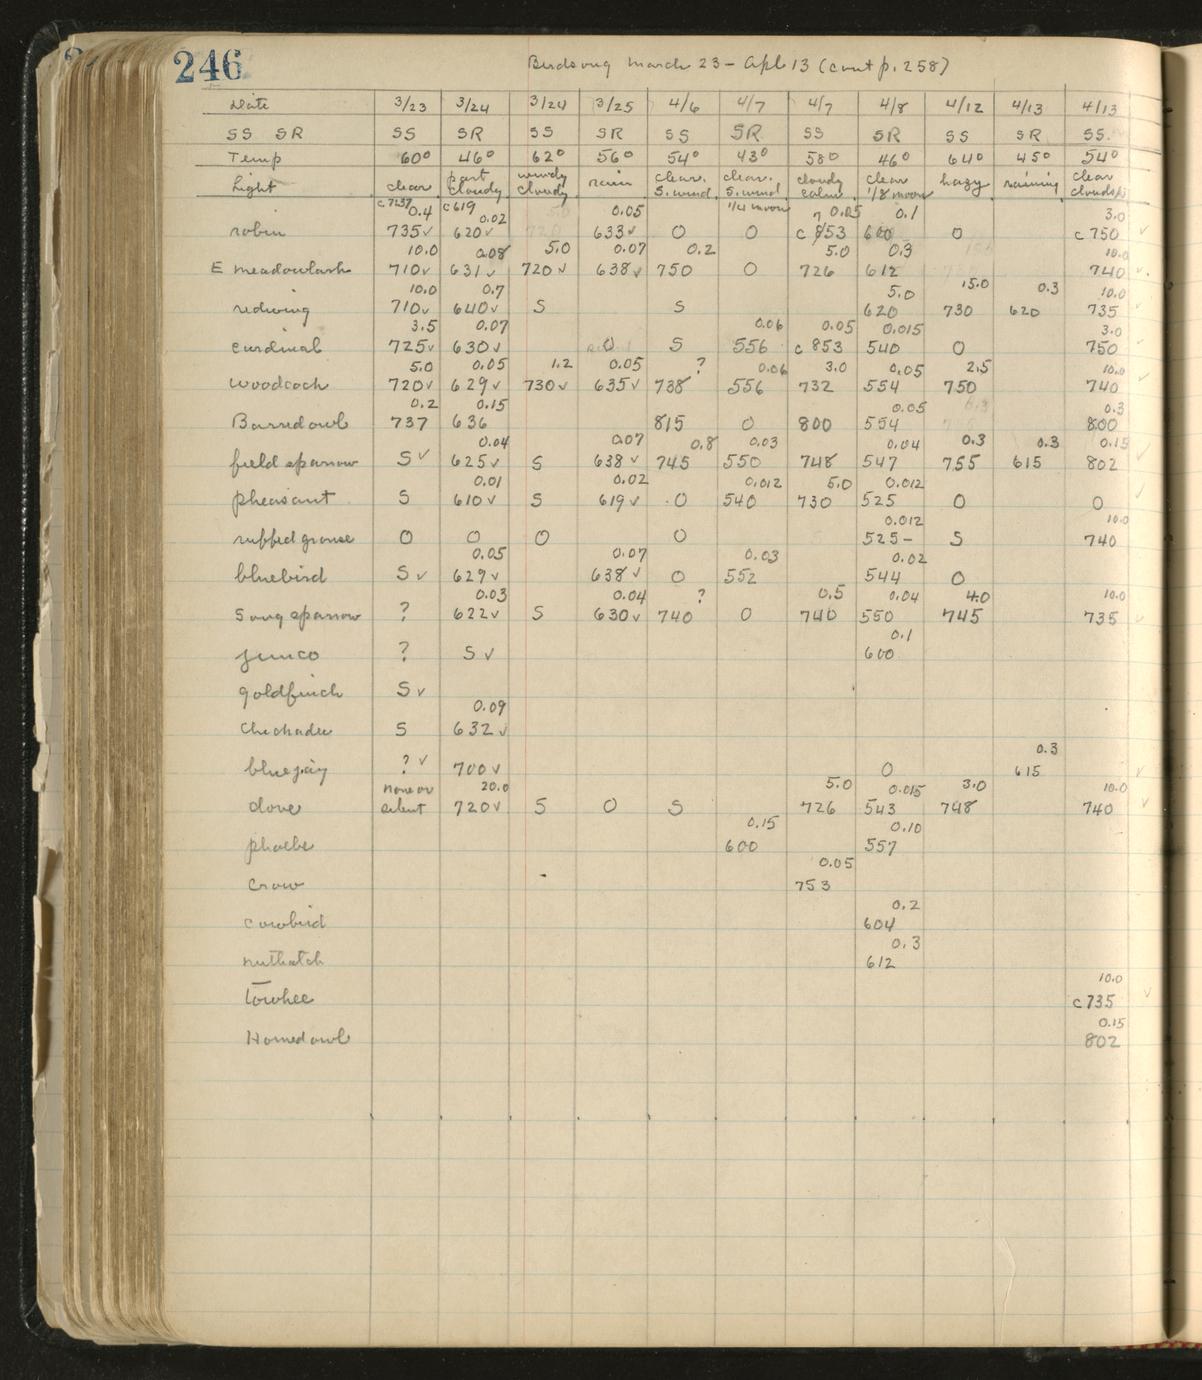 246
Birdsong March 23 – Apl 13 (cont p. 258)
Date 3/23 3/24 3/24 3/25 4/6 4/7 4/7 4/8 4/12 4/13 4/13
SS SR SS SR SS SR SS SR SS SR SS SR SS.
Temp 60° 46° 62° 56° 54° 43° 58° 46° 64° 45° 54°
Light clear part cloudy windy cloudy rain clear. S. wind clear. S. wind 1/4 moon cloudy calm clear 1/8 moon hazy raining clear
c 7237 0.4 c 619 0.02 0.05 0.05 0.1 3.0
robin 735✓ 620✓ 633✓ O O c 853 600 O c 750 ✓
10.0 0.08 5.0 0.07 0.2 5.0 0.3 10.0
E meadowlark 710✓ 631✓ 720✓ 638✓ 750 O 726 612 740 ✓.
10.0 0.7 5.0 15.0 0.3 10.0
redwing 710✓ 640✓ S S 620 730 620 735
3.5 0.07 0.06 0.05 0.015 3.0
cardinal 725✓ 630✓ O S 556 c 853 540 O 750
5.0 0.05 1.2 0.05 ? 0.06 3.0 0.05 2.5 10.0
woodcock 720✓ 629✓ 730✓ 635✓ 738 556 732 554 750 740 ✓
0.2 0.15 0.05 0.3
Barred owl 737 636 815 O 800 554 800
0.04 0.07 0.8 0.03 0.04 0.3 0.3 0.15
field sparrow S✓ 625✓ S 638✓ 745 550 748 547 755 615 802 ✓
0.01 0.02 0.012 5.0 0.012
pheasant S 610✓ S 619✓ O 540 730 525 O O ✓
0.012 10.0
ruffed grouse O O O O 525– S 740
0.05 0.07 0.03 0.02
bluebird S✓ 629✓ 638✓ O 552 544 O
0.03 0.04 ? 0.5 0.04 4.0 10.0
Song sparrow ? 622✓ S 630✓ 740 O 740 550 745 735 ✓
0.1
junco ? S✓ 600
goldfinch S✓
0.09
chickadee S 632✓
0.3
bluejay ?✓ 700✓ O 615 ✓
none or 20.0 5.0 0.015 3.0 10.0
dove silent 720✓ S O S 726 543 748 740 ✓
0.15 0.10
phoebe 600 557
0.05
Crow 753
0.2
cowbird 604
0.3
nuthatch 612
10.0
Towhee c 735 ✓
0.15
Horned owl 802